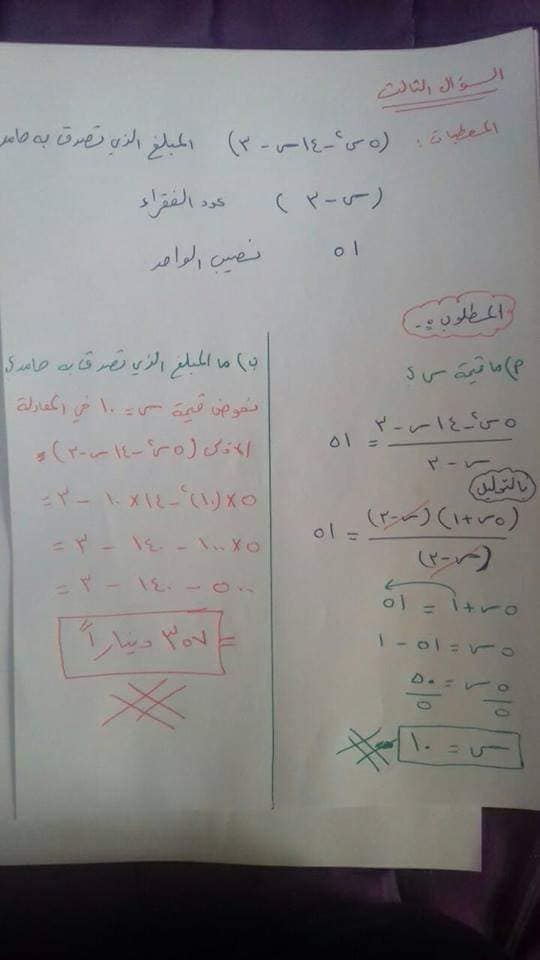 السؤال الثالث
المعطيات : (٥س٢ - ١٤س - ٣) المبلغ الذي تصدق به حامد
(س - ٣) عدد الفقراء
٥١ نصيب الواحد
المطلوب :
أ) ما قيمة س ؟
٥س٢ - ١٤س - ٣
س - ٣
= ٥١
بالتحليل
(٥س + ١) (س - ٣)
(س - ٣)
= ٥١
٥س + ١ = ٥١
٥س = ٥١ - ١
٥س = ٥٠
٥ ٥
س = ١٠
ب) ما المبلغ الذي تصدق به حامد ؟
نعوض قيمة س = ١٠ في المعادلة
(٥س٢ - ١٤س - ٣) =
٥ × (١٠)٢ - ١٤ × ١٠ - ٣ =
٥ × ١٠٠ - ١٤٠ - ٣ =
٥٠٠ - ١٤٠ - ٣ =
= ٣٥٧ ديناراً